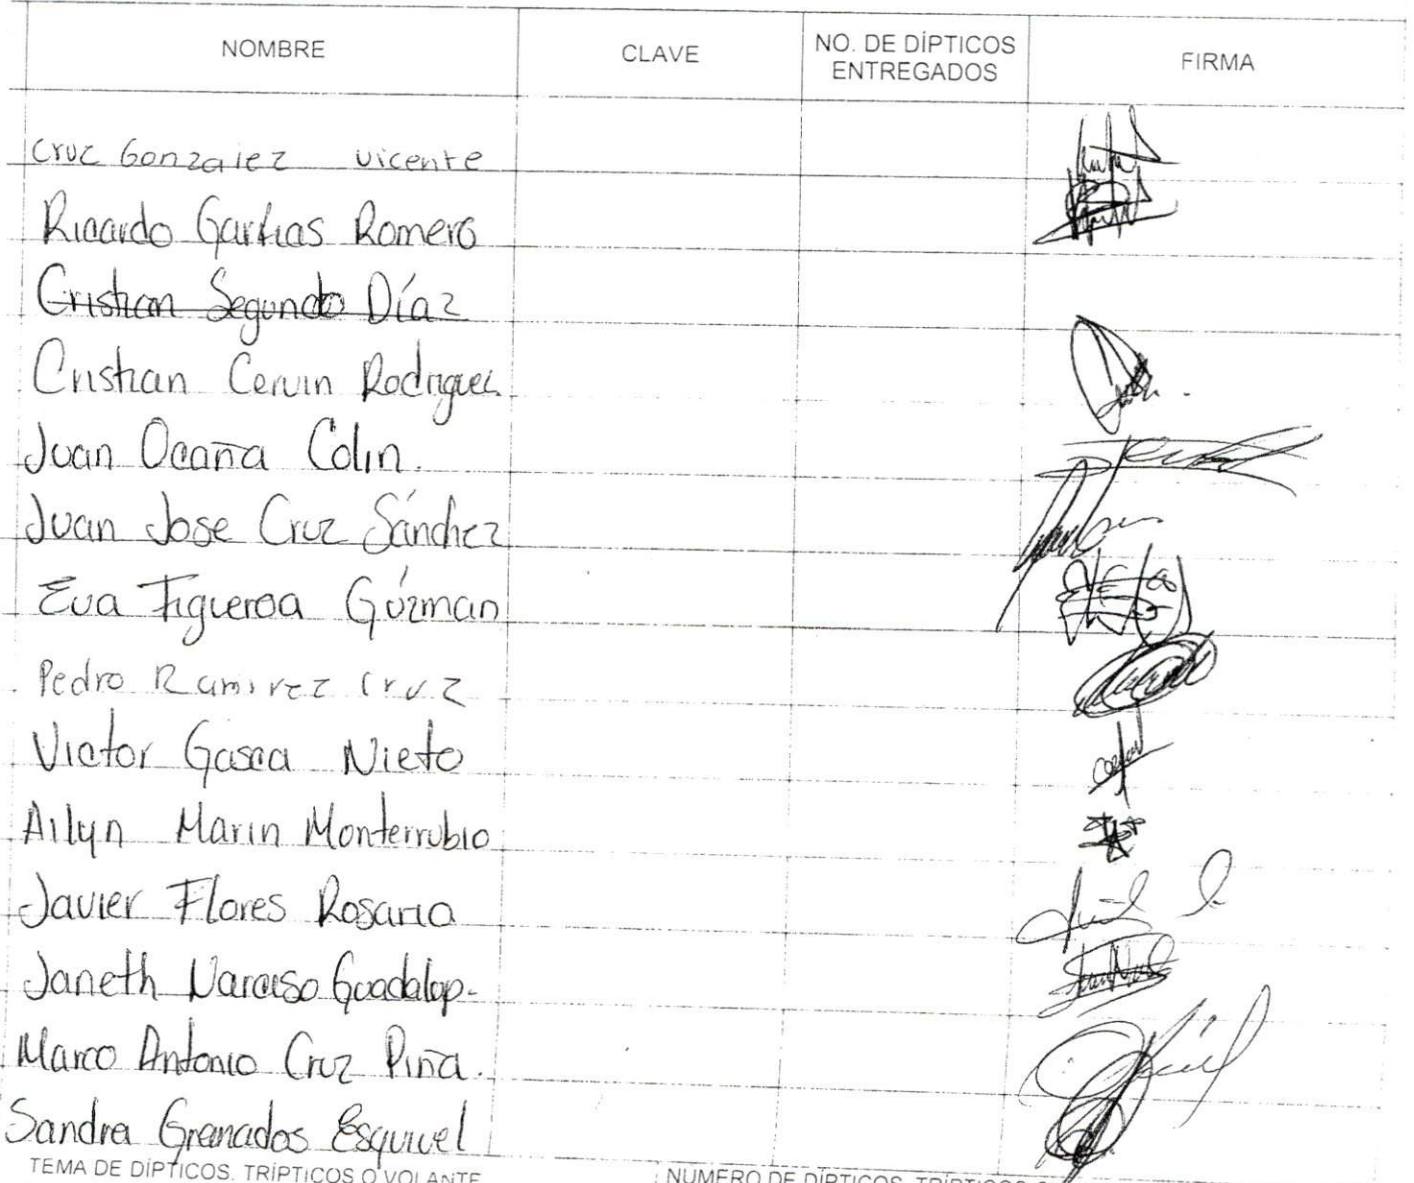 NOMBRE CLAVE NO. DE DÍPTICOS ENTREGADOS FIRMA
Cruz Gonzalez Vicente
Ricardo Garfias Romero
Cristian Segundo Díaz
Cristian Cervin Rodriguez
Juan Ocaña Colin.
Juan Jose Cruz Sánchez
Eva Figueroa Gúzman
Pedro Ramirez Cruz
Victor Gasca Nieto
Ailyn Marin Monterrubio
Javier Flores Rosario
Janeth Narciso Guadalup.
Marco Antonio Cruz Piña.
Sandra Granados Esquivel
TEMA DE DÍPTICOS, TRÍPTICOS O VOLANTE NUMERO DE DÍPTICOS, TRÍPTICOS